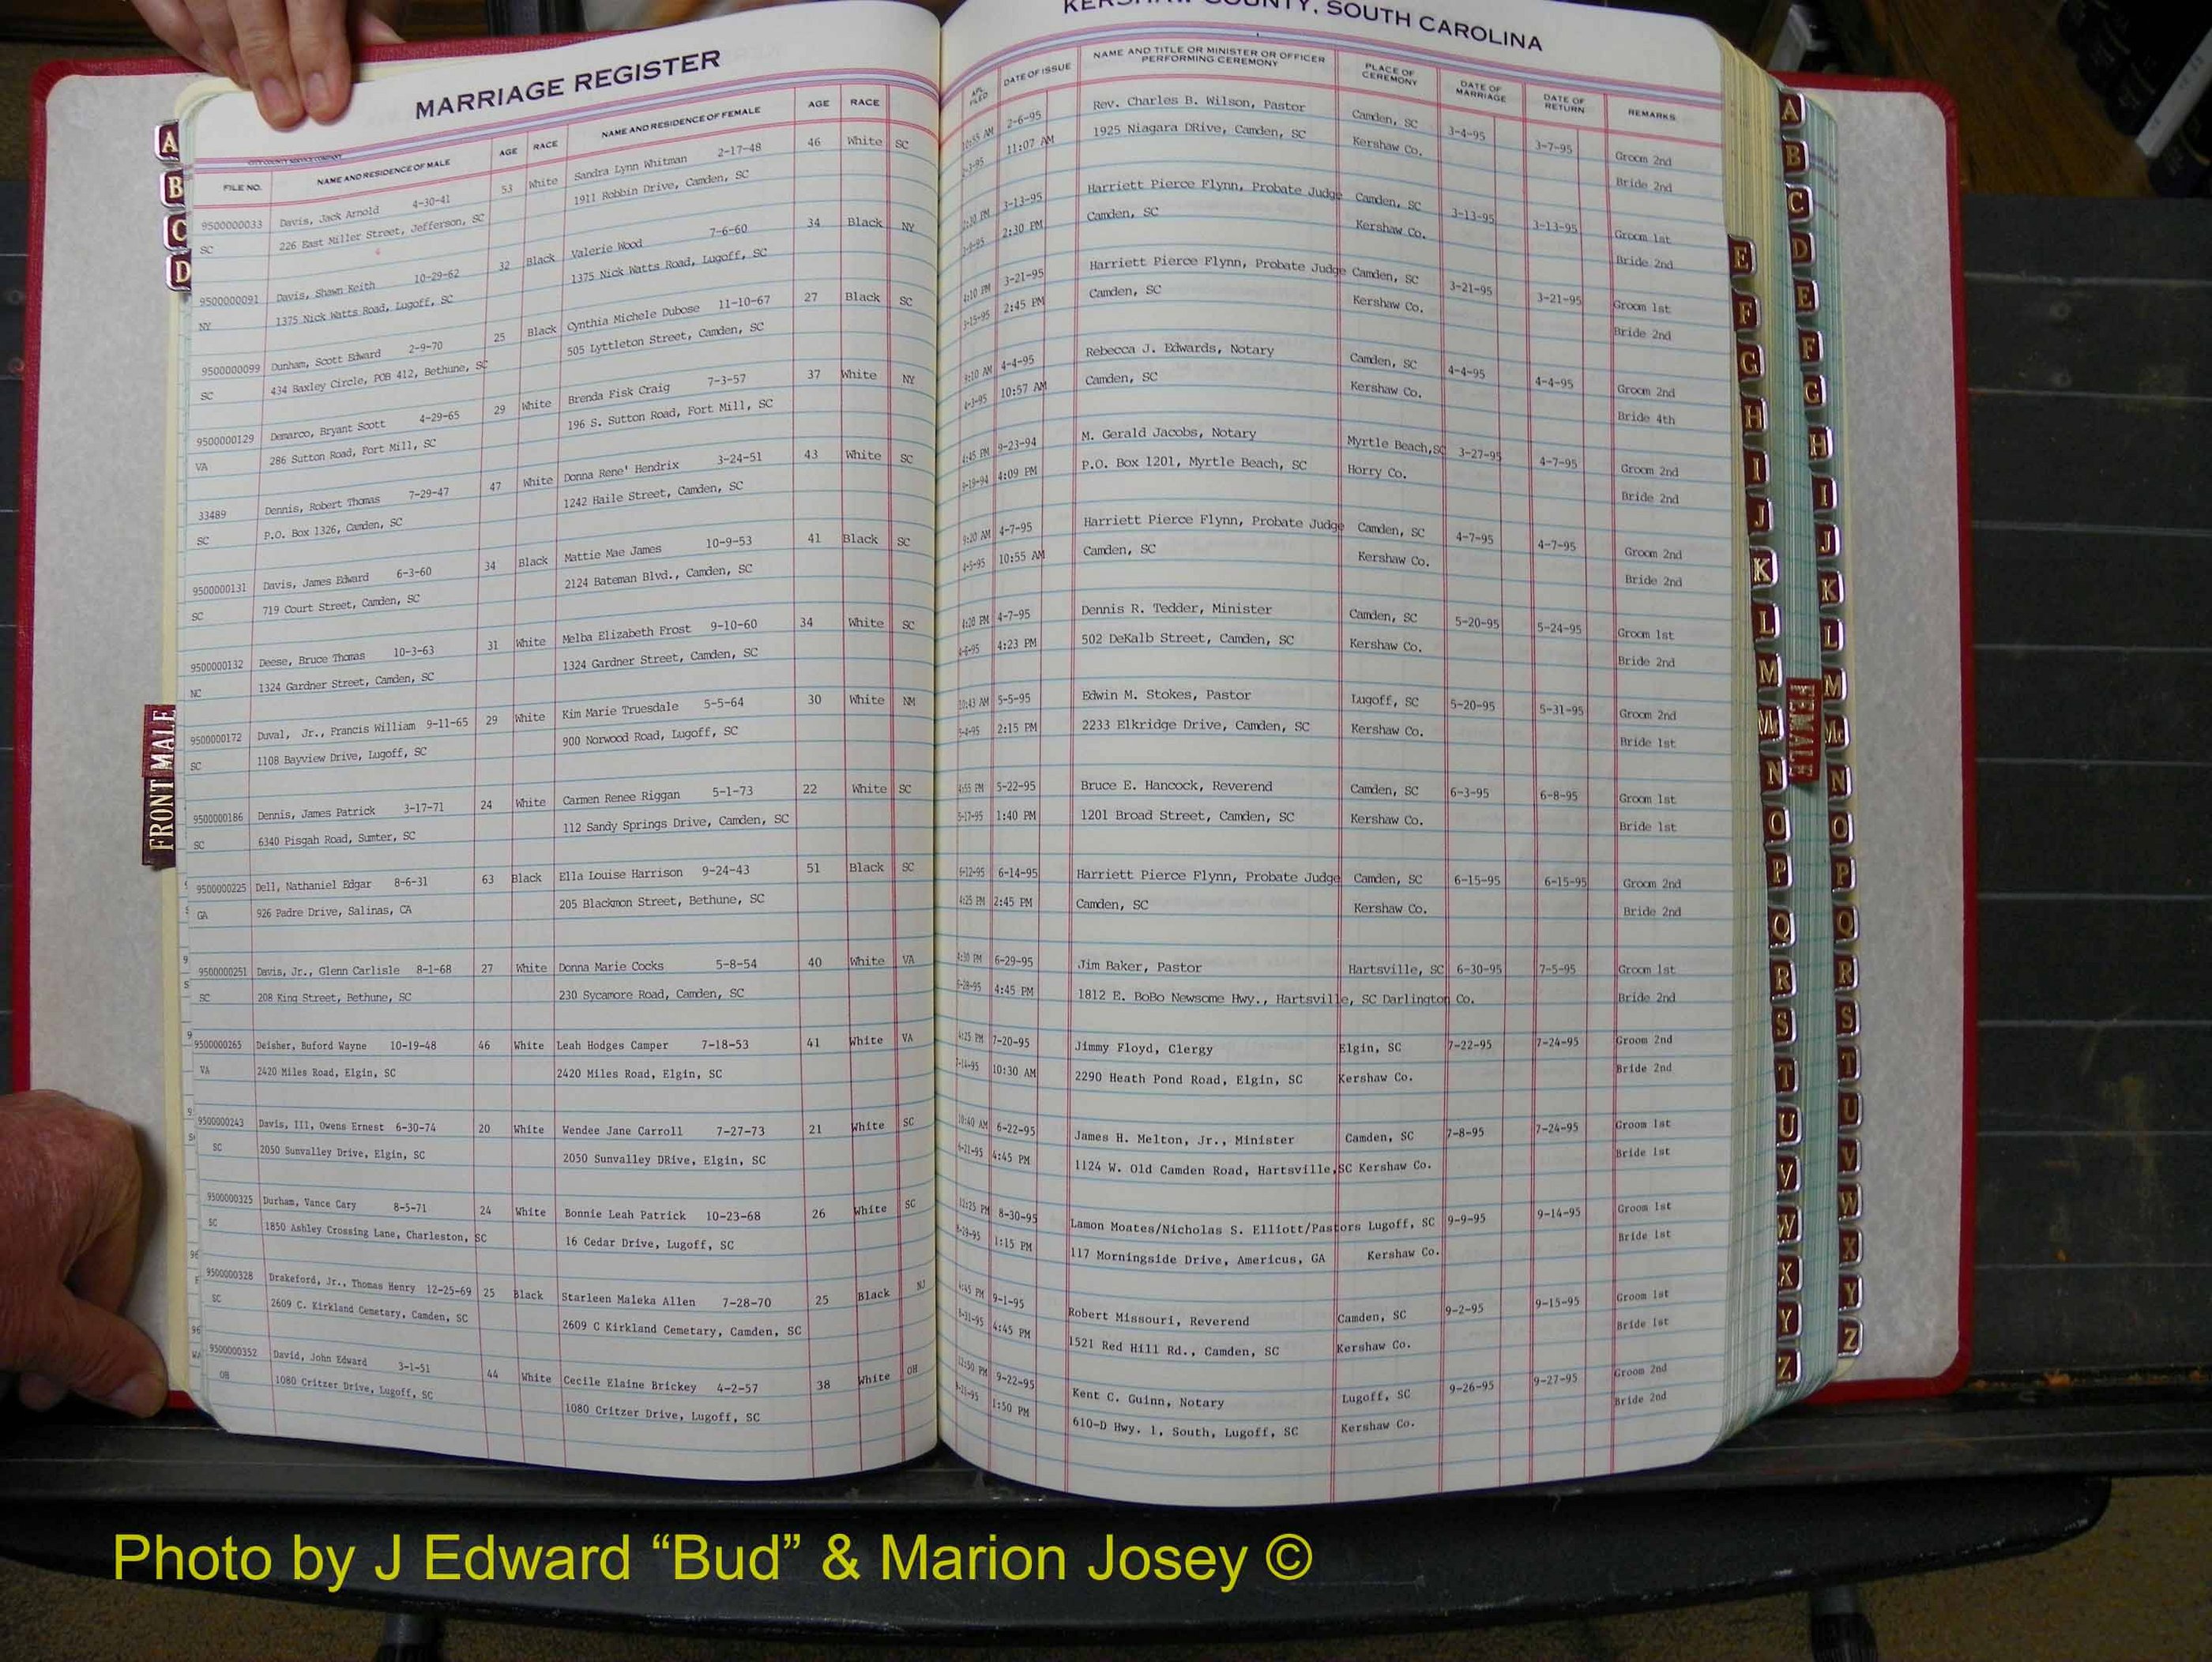 MARRIAGE REGISTER
FILE NO. NAME AND RESIDENCE OF MALE AGE RACE NAME AND RESIDENCE OF FEMALE AGE RACE
9500000033 Davis, Jack Arnold 4-30-41 53 White Sandra Lynn Whitman 2-17-48 46 White SC
SC 226 East Miller Street, Jefferson, SC 1911 Robbin Drive, Camden, SC
9500000091 Davis, Shawn Keith 10-29-62 32 Black Valerie Wood 7-6-60 34 Black NY
NY 1375 Nick Watts Road, Lugoff, SC 1375 Nick Watts Road, Lugoff, SC
9500000099 Dunham, Scott Edward 2-9-70 25 Black Cynthia Michele Dubose 11-10-67 27 Black SC
SC 434 Baxley Circle, POB 412, Bethune, SC 505 Lyttleton Street, Camden, SC
9500000129 Demarco, Bryant Scott 4-29-65 29 White Brenda Fisk Craig 7-3-57 37 White NY
VA 286 Sutton Road, Fort Mill, SC 196 S. Sutton Road, Fort Mill, SC
33489 Dennis, Robert Thomas 7-29-47 47 White Donna Rene' Hendrix 3-24-51 43 White SC
SC P.O. Box 1326, Camden, SC 1242 Haile Street, Camden, SC
9500000131 Davis, James Edward 6-3-60 34 Black Mattie Mae James 10-9-53 41 Black SC
SC 719 Court Street, Camden, SC 2124 Bateman Blvd., Camden, SC
9500000132 Deese, Bruce Thomas 10-3-63 31 White Melba Elizabeth Frost 9-10-60 34 White SC
NC 1324 Gardner Street, Camden, SC 1324 Gardner Street, Camden, SC
9500000172 Duval, Jr., Francis William 9-11-65 29 White Kim Marie Truesdale 5-5-64 30 White NM
SC 1108 Bayview Drive, Lugoff, SC 900 Norwood Road, Lugoff, SC
9500000186 Dennis, James Patrick 3-17-71 24 White Carmen Renee Riggan 5-1-73 22 White SC
SC 6340 Pisgah Road, Sumter, SC 112 Sandy Springs Drive, Camden, SC
9500000225 Dell, Nathaniel Edgar 8-6-31 63 Black Ella Louise Harrison 9-24-43 51 Black SC
GA 926 Padre Drive, Salinas, CA 205 Blackmon Street, Bethune, SC
9500000251 Davis, Jr., Glenn Carlisle 8-1-68 27 White Donna Marie Cocks 5-8-54 40 White VA
SC 208 King Street, Bethune, SC 230 Sycamore Road, Camden, SC
9500000265 Deisher, Buford Wayne 10-19-48 46 White Leah Hodges Camper 7-18-53 41 White VA
VA 2420 Miles Road, Elgin, SC 2420 Miles Road, Elgin, SC
9500000243 Davis, III, Owens Ernest 6-30-74 20 White Wendee Jane Carroll 7-27-73 21 White SC
SC 2050 Sunvalley Drive, Elgin, SC 2050 Sunvalley DRive, Elgin, SC
9500000325 Durham, Vance Cary 8-5-71 24 White Bonnie Leah Patrick 10-23-68 26 White SC
SC 1850 Ashley Crossing Lane, Charleston, SC 16 Cedar Drive, Lugoff, SC
9500000328 Drakeford, Jr., Thomas Henry 12-25-69 25 Black Starleen Maleka Allen 7-28-70 25 Black NJ
SC 2609 C. Kirkland Cemetary, Camden, SC 2609 C Kirkland Cemetary, Camden, SC
9500000352 David, John Edward 3-1-51 44 White Cecile Elaine Brickey 4-2-57 38 White OH
OH 1080 Critzer Drive, Lugoff, SC 1080 Critzer Drive, Lugoff, SC
KERSHAW COUNTY, SOUTH CAROLINA
APL. FILED DATE OF ISSUE NAME AND TITLE OR MINISTER OR OFFICER PERFORMING CEREMONY PLACE OF CEREMONY DATE OF MARRIAGE DATE OF RETURN REMARKS
10:55 AM 2-6-95 Rev. Charles B. Wilson, Pastor Camden, SC 3-4-95 3-7-95 Groom 2nd
11:07 AM 1925 Niagara DRive, Camden, SC Kershaw Co. Bride 2nd
3-13-95 Harriett Pierce Flynn, Probate Judge Camden, SC 3-13-95 3-13-95 Groom 1st
2:30 PM Camden, SC Kershaw Co. Bride 2nd
4:10 PM 3-21-95 Harriett Pierce Flynn, Probate Judge Camden, SC 3-21-95 3-21-95 Groom 1st
3-15-95 2:45 PM Camden, SC Kershaw Co. Bride 2nd
9:10 AM 4-4-95 Rebecca J. Edwards, Notary Camden, SC 4-4-95 4-4-95 Groom 2nd
4-3-95 10:57 AM Camden, SC Kershaw Co. Bride 4th
4:45 PM 9-23-94 M. Gerald Jacobs, Notary Myrtle Beach,SC 3-27-95 4-7-95 Groom 2nd
9-19-94 4:09 PM P.O. Box 1201, Myrtle Beach, SC Horry Co. Bride 2nd
9:20 AM 4-7-95 Harriett Pierce Flynn, Probate Judge Camden, SC 4-7-95 4-7-95 Groom 2nd
4-5-95 10:55 AM Camden, SC Kershaw Co. Bride 2nd
4:20 PM 4-7-95 Dennis R. Tedder, Minister Camden, SC 5-20-95 5-24-95 Groom 1st
4-6-95 4:23 PM 502 DeKalb Street, Camden, SC Kershaw Co. Bride 2nd
10:43 AM 5-5-95 Edwin M. Stokes, Pastor Lugoff, SC 5-20-95 5-31-95 Groom 2nd
5-4-95 2:15 PM 2233 Elkridge Drive, Camden, SC Kershaw Co. Bride 1st
4:55 PM 5-22-95 Bruce E. Hancock, Reverend Camden, SC 6-3-95 6-8-95 Groom 1st
5-17-95 1:40 PM 1201 Broad Street, Camden, SC Kershaw Co. Bride 1st
6-12-95 6-14-95 Harriett Pierce Flynn, Probate Judge Camden, SC 6-15-95 6-15-95 Groom 2nd
4:25 PM 2:45 PM Camden, SC Kershaw Co. Bride 2nd
4:30 PM 6-29-95 Jim Baker, Pastor Hartsville, SC 6-30-95 7-5-95 Groom 1st
6-28-95 4:45 PM 1812 E. BoBo Newsome Hwy., Hartsville, SC Darlington Co. Bride 2nd
4:25 PM 7-20-95 Jimmy Floyd, Clergy Elgin, SC 7-22-95 7-24-95 Groom 2nd
10:30 AM 2290 Heath Pond Road, Elgin, SC Kershaw Co. Bride 2nd
10:40 AM 6-22-95 James H. Melton, Jr., Minister Camden, SC 7-8-95 7-24-95 Groom 1st
6-21-95 4:45 PM 1124 W. Old Camden Road, Hartsville,SC Kershaw Co. Bride 1st
12:25 PM 8-30-95 Lamon Moates/Nicholas S. Elliott/Pastors Lugoff, SC 9-9-95 9-14-95 Groom 1st
8-29-95 1:15 PM 117 Morningside Drive, Americus, GA Kershaw Co. Bride 1st
4:45 PM 9-1-95 Robert Missouri, Reverend Camden, SC 9-2-95 9-15-95 Groom 1st
8-31-95 4:45 PM 1521 Red Hill Rd., Camden, SC Kershaw Co. Bride 1st
12:50 PM 9-22-95 Kent C. Guinn, Notary Lugoff, SC 9-26-95 9-27-95 Groom 2nd
1:50 PM 610-D Hwy. 1, South, Lugoff, SC Kershaw Co. Bride 2nd
A
B
C
D
FRONT MALE
E
F
G
H
I
J
K
L
M
Mc
N
O
P
Q
R
S
T
U
V
W
X
Y
Z
A
B
C
D
E
F
G
H
I
J
K
L
M
Mc
N
O
P
Q
R
S
T
U
V
W
X
Y
Z
FEMALE
Photo by J Edward “Bud” & Marion Josey ©